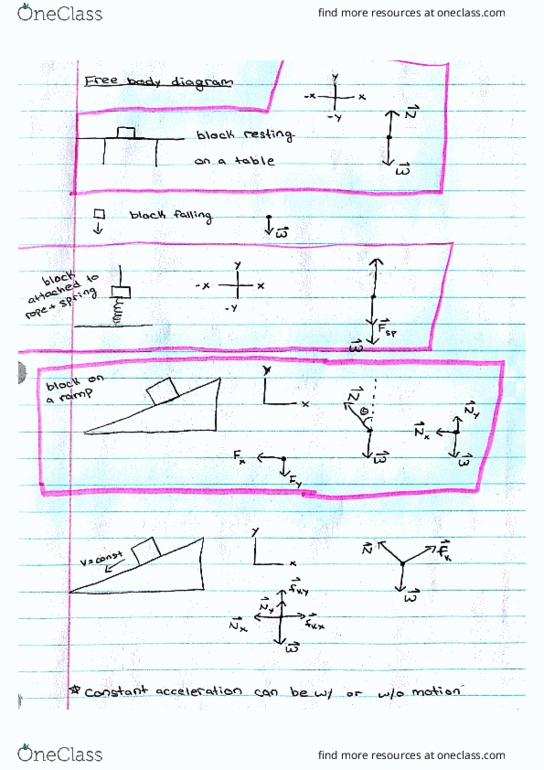 OneClass
find more resources at oneclass.com
Free body diagram
y
-x x
-y
block resting
on a table
N
w
block falling
w
block
attached to
rope + spring
y
-x x
-y
F sp
w
block on
a ramp
y
x
N
θ
w
Ny
Nx
w
Fx
Fy
v=const
y
x
N
fk
w
fky
Ny
Nx
fkx
w
* Constant acceleration can be w/ or w/o motion
OneClass
find more resources at oneclass.com